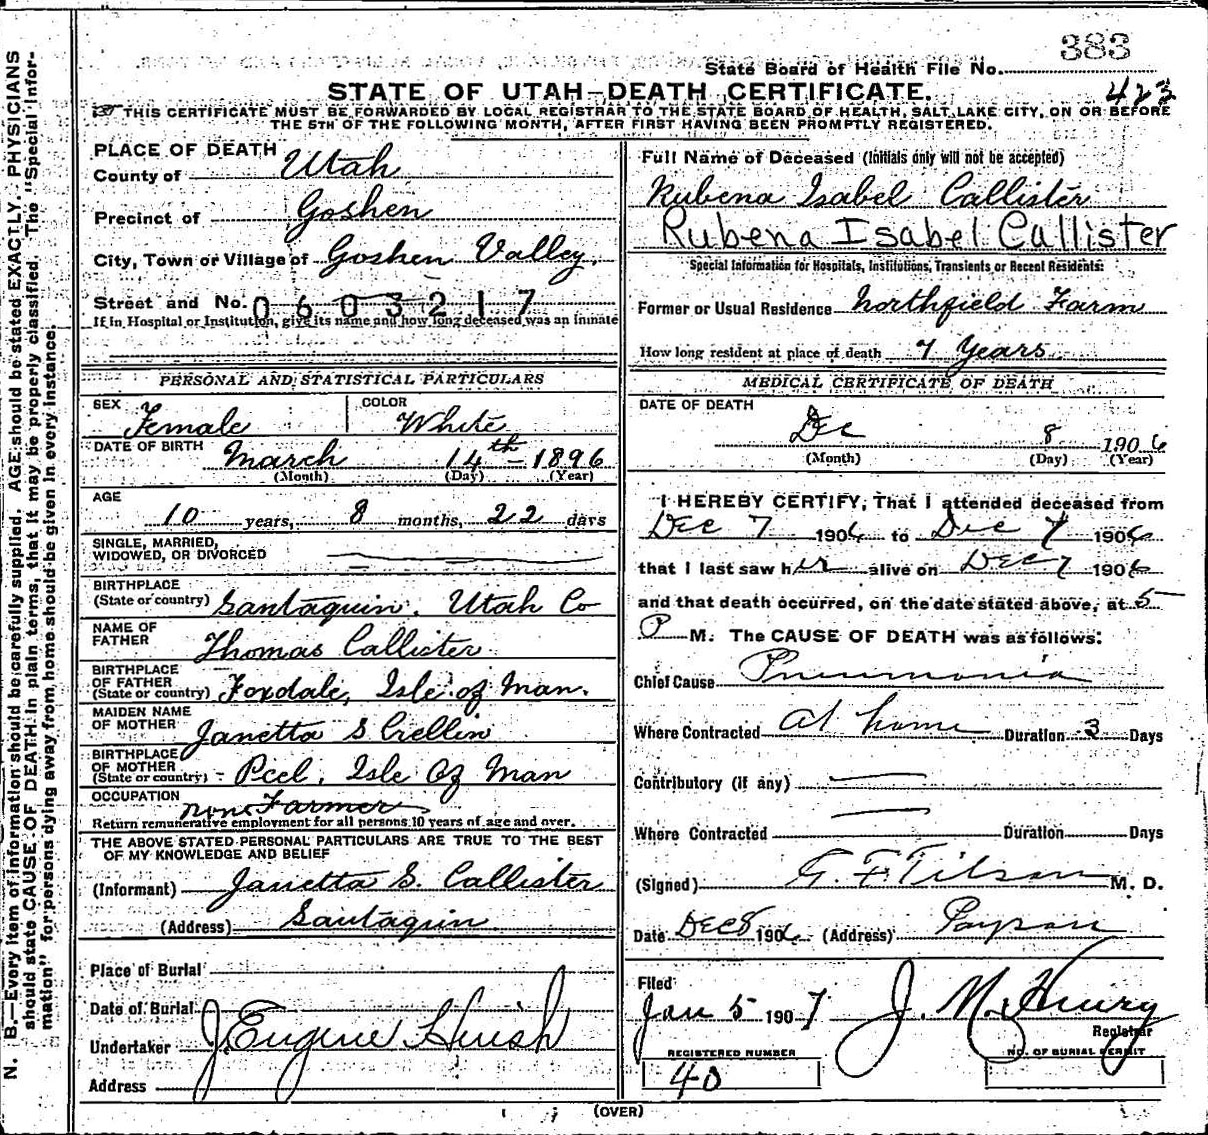 383
State Board of Health File No.
423
STATE OF UTAH—DEATH CERTIFICATE.
THIS CERTIFICATE MUST BE FORWARDED BY LOCAL REGISTRAR TO THE STATE BOARD OF HEALTH, SALT LAKE CITY, ON OR BEFORE
THE 5TH OF THE FOLLOWING MONTH, AFTER FIRST HAVING BEEN PROMPTLY REGISTERED.
N. B.—Every item of information should be carefully supplied. AGE should be stated EXACTLY. PHYSICIANS
should state CAUSE OF DEATH in plain terms, that it may be properly classified. The "Special Infor-
mation" for persons dying away from home should be given in every instance.
PLACE OF DEATH
County of Utah
Precinct of Goshen
City, Town or Village of Goshen Valley.
Street and No. 0603217
If in Hospital or Institution, give its name and how long deceased was an inmate
PERSONAL AND STATISTICAL PARTICULARS
SEX Female COLOR White
DATE OF BIRTH March 14th - 1896
(Month) (Day) (Year)
AGE
10 years, 8 months, 22 days
SINGLE, MARRIED,
WIDOWED, OR DIVORCED
BIRTHPLACE
(State or country) Santaquin, Utah Co
NAME OF
FATHER Thomas Callister
BIRTHPLACE
OF FATHER
(State or country) Foxdale, Isle of Man.
MAIDEN NAME
OF MOTHER Janetta S Crellin
BIRTHPLACE
OF MOTHER
(State or country) Peel, Isle Of Man
OCCUPATION none Farmer
Return remunerative employment for all persons 10 years of age and over.
THE ABOVE STATED PERSONAL PARTICULARS ARE TRUE TO THE BEST
OF MY KNOWLEDGE AND BELIEF
(Informant) Janetta S. Callister
(Address) Santaquin
Place of Burial
Date of Burial
Undertaker J. Eugene Huish
Address
Full Name of Deceased (Initials only will not be accepted)
Rubena Isabel Callister
Rubena Isabel Callister
Special Information for Hospitals, Institutions, Transients or Recent Residents:
Former or Usual Residence Northfield Farm
How long resident at place of death 7 Years
MEDICAL CERTIFICATE OF DEATH
DATE OF DEATH
Dec 8 1906
(Month) (Day) (Year)
I HEREBY CERTIFY, That I attended deceased from
Dec 7 1906 to Dec 7 1906
that I last saw her alive on Dec 7 1906
and that death occurred, on the date stated above, at 5
P M. The CAUSE OF DEATH was as follows:
Chief Cause Pneumonia
Where Contracted At home Duration 3 Days
Contributory (if any)
Where Contracted Duration Days
(Signed) G. F. Tilson M. D.
Date Dec 8 1906 (Address) Payson
Filed
Jan 5 1907 J. M. Henry
Registrar
REGISTERED NUMBER
40
NO. OF BURIAL PERMIT
(OVER)